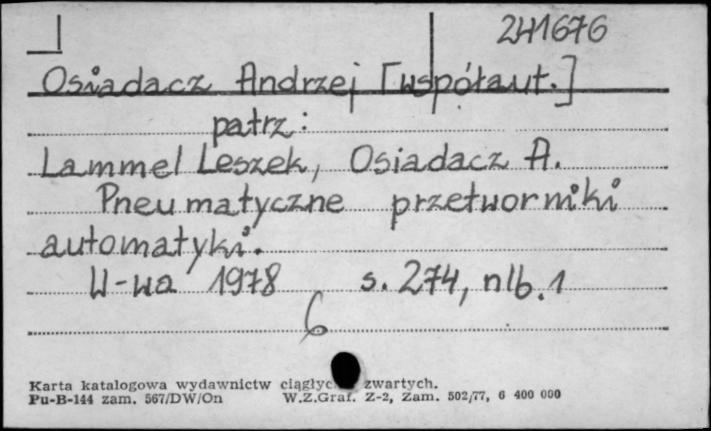 241676
Osiadacz Andrzej [współaut.]
patrz:
Lammel Leszek, Osiadacz A.
Pneumatyczne przetworniki
automatyki.
W-wa 1978 s. 274, nlb. 1
6
Karta katalogowa wydawnictw zwartych.
Pu-B-144 zam. 567/DW/On W.Z.Graf. Z-2, Zam. 502/77, 6 400 000